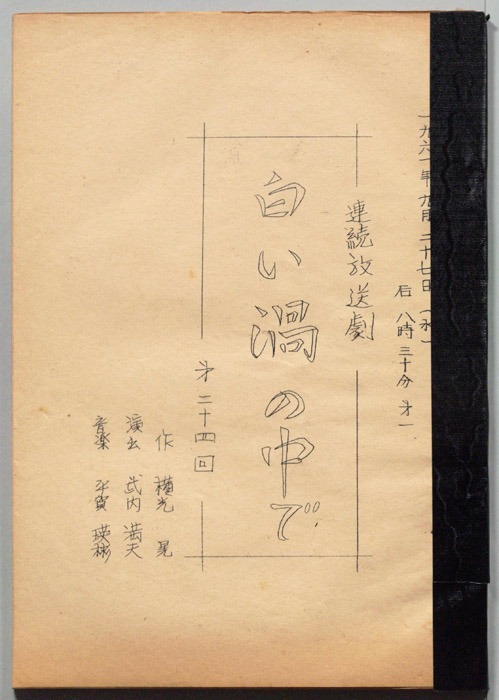 一九六一年九月二十七日（水）
后八時三十分 才一
連続放送劇
白い渦の中で
才二十四回
作 横光 晃
演出 武内 満夫
音楽 平賀 瑛彬